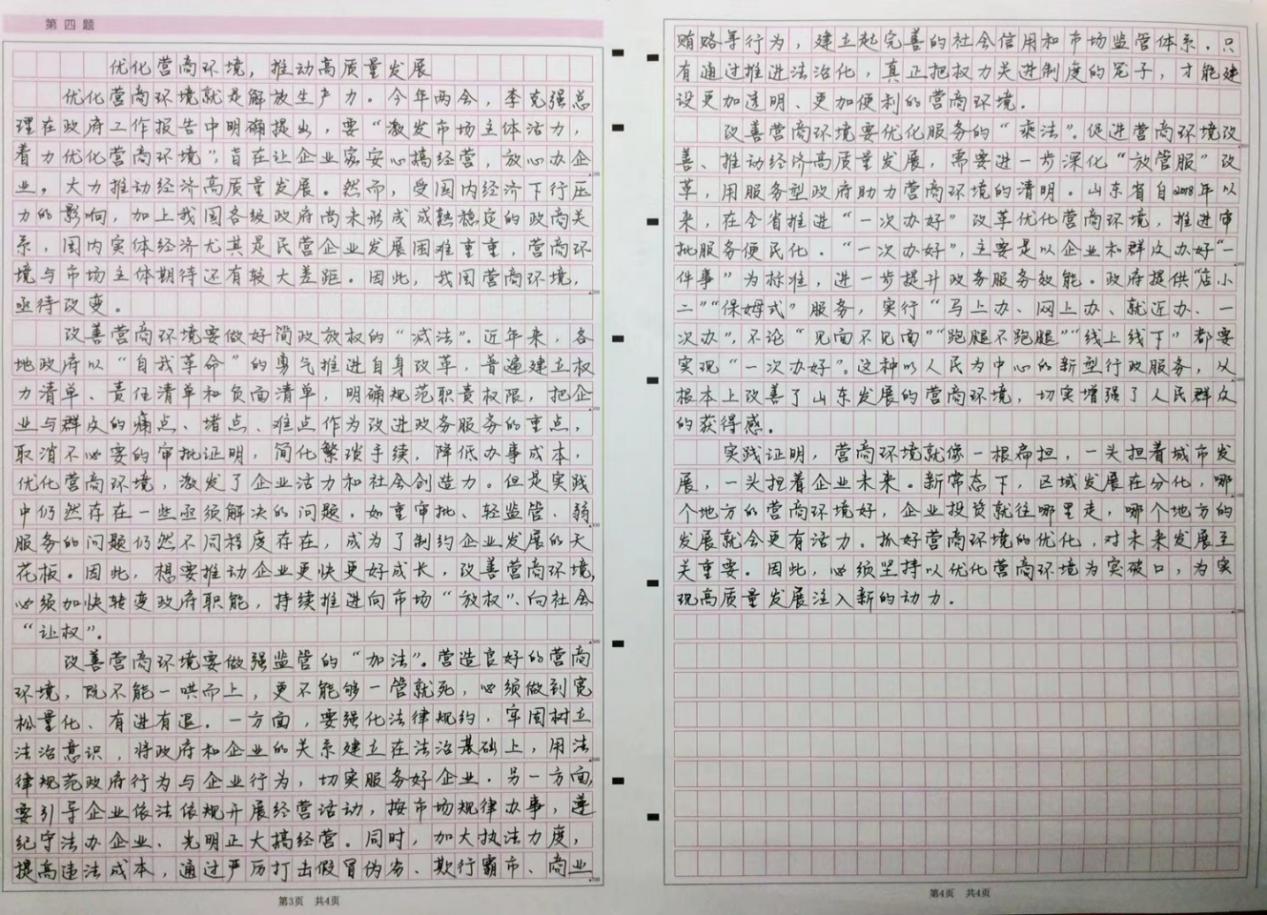 第四题
优化营商环境，推动高质量发展
优化营商环境就是解放生产力。今年两会，李克强总
理在政府工作报告中明确提出，要“激发市场主体活力，
着力优化营商环境”，旨在让企业家安心搞经营，放心办企
业，大力推动经济高质量发展。然而，受国内经济下行压
力的影响，加上我国各级政府尚未形成成熟稳定的政商关
系，国内实体经济尤其是民营企业发展困难重重，营商环
境与市场主体期待还有较大差距。因此，我国营商环境，
亟待改变。
改善营商环境要做好简政放权的“减法”。近年来，各
地政府以“自我革命”的勇气推进自身改革，普遍建立权
力清单、责任清单和负面清单，明确规范职责权限，把企
业与群众的痛点、堵点、难点作为改进政务服务的重点，
取消不必要的审批证明，简化繁琐手续，降低办事成本，
优化营商环境，激发了企业活力和社会创造力。但是实践
中仍然存在一些亟须解决的问题。如重审批、轻监管、弱
服务的问题仍然不同程度存在，成为了制约企业发展的天
花板。因此，想要推动企业更快更好成长，改善营商环境，
必须加快转变政府职能，持续推进向市场“放权”、向社会
“让权”。
改善营商环境要做强监管的“加法”。营造良好的营商
环境，既不能一哄而上，更不能够一管就死，必须做到宽
松量化、有进有退。一方面，要强化法律规约，牢固树立
法治意识，将政府和企业的关系建立在法治基础上，用法
律规范政府行为与企业行为，切实服务好企业。另一方面，
要引导企业依法依规开展经营活动，按市场规律办事，遵
纪守法办企业、光明正大搞经营。同时，加大执法力度，
提高违法成本，通过严厉打击假冒伪劣、欺行霸市、商业
第3页 共4页
贿赂等行为，建立起完善的社会信用和市场监管体系。只
有通过推进法治化，真正把权力关进制度的笼子，才能建
设更加透明、更加便利的营商环境。
改善营商环境要优化服务的“乘法”。促进营商环境改
善、推动经济高质量发展，需要进一步深化“放管服”改
革，用服务型政府助力营商环境的清明。山东省自2018年以
来，在全省推进“一次办好”改革优化营商环境，推进审
批服务便民化。“一次办好”，主要是以企业和群众办好“一
件事”为标准，进一步提升政务服务效能。政府提供“店小
二”“保姆式”服务，实行“马上办、网上办、就近办、一
次办”，不论“见面不见面”“跑腿不跑腿”“线上线下”都要
实现“一次办好”。这种以人民为中心的新型行政服务，从
根本上改善了山东发展的营商环境，切实增强了人民群众
的获得感。
实践证明，营商环境就像一根扁担，一头担着城市发
展，一头担着企业未来。新常态下，区域发展在分化，哪
个地方的营商环境好，企业投资就往哪里走，哪个地方的
发展就会更有活力。抓好营商环境的优化，对未来发展至
关重要。因此，必须坚持以优化营商环境为突破口，为实
现高质量发展注入新的动力。
第4页 共4页